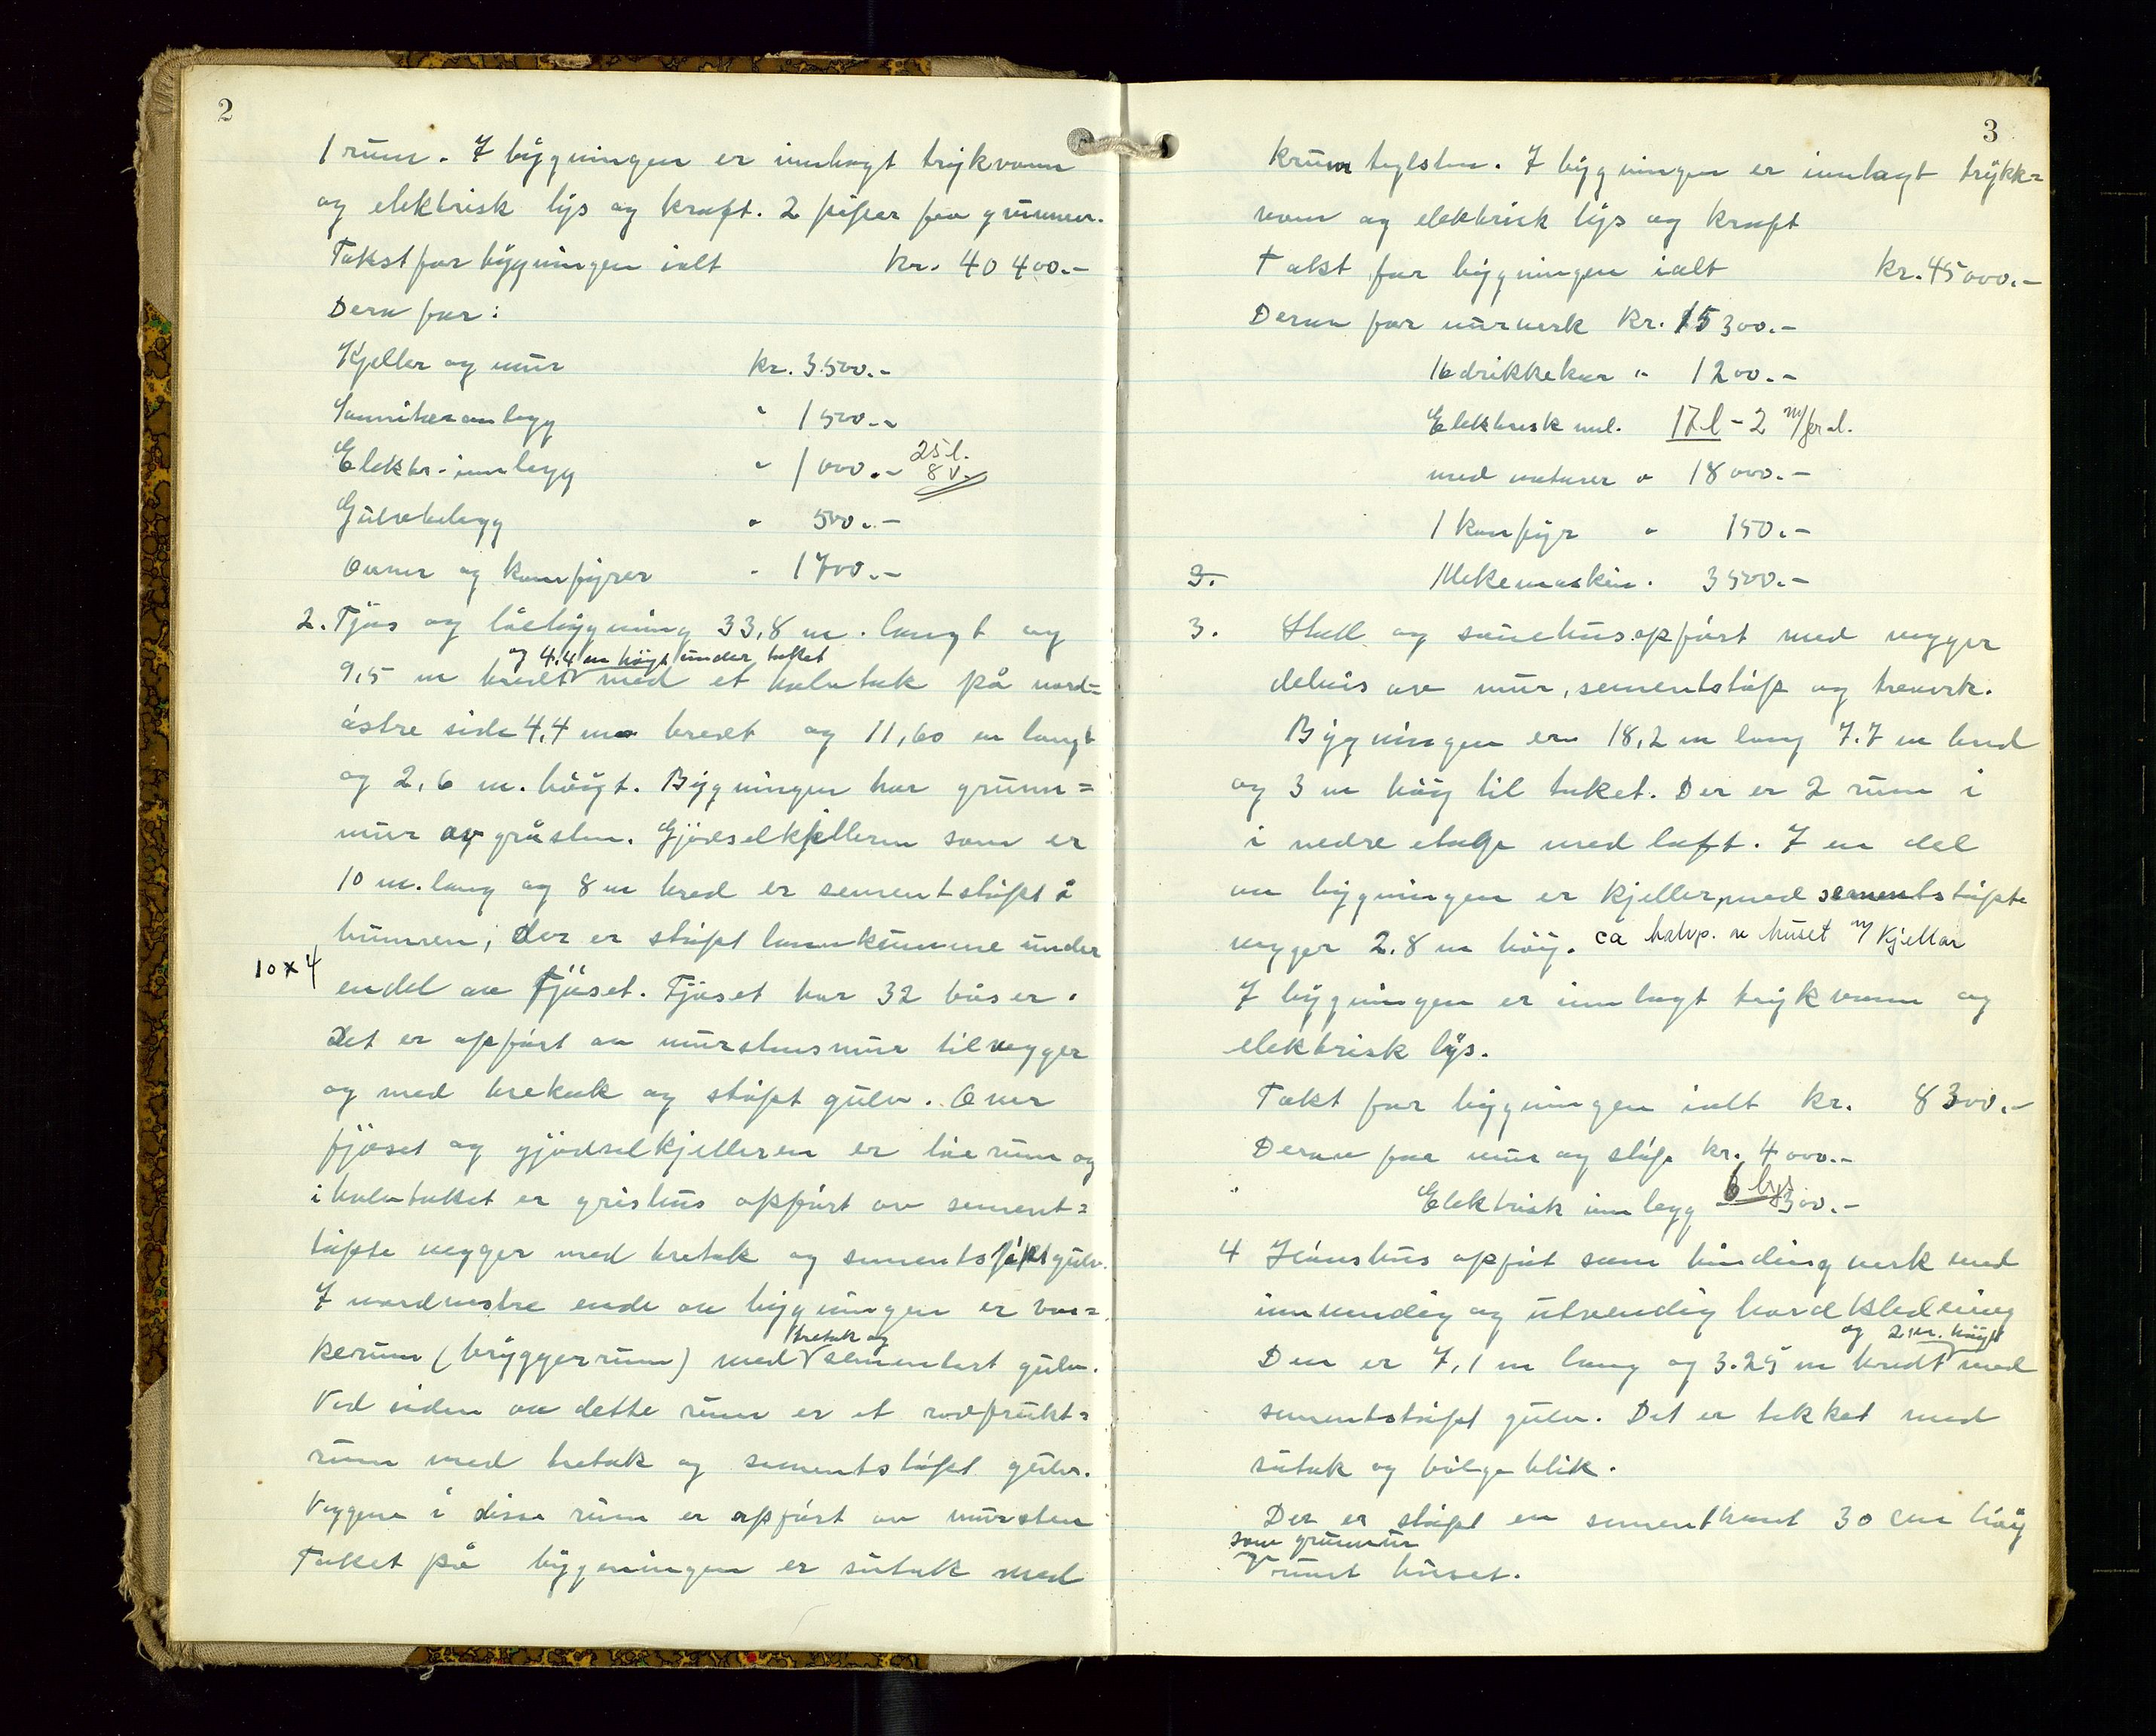 2
1 rum. I bygningen er innlagt trykvann
og elektrisk lys og kraft. 2 piper fra grunnen.
Takst for bygningen ialt kr. 40 400.-
Derav for:
Kjeller og mur kr. 3500.-
Sanniteranlegg " 1500.-
Elektr. innlegg " 1000.- 25 l.
8 v.
Gulvbelegg " 500.-
Ovner og komfyrer " 1700.-
2. Fjøs og løebygning 33,8 m. langt og
og 4,4 m høgt under taket
9,5 m bredt med et halvtak på nord=
østre side 4,4 m bredt og 11,60 m langt
og 2,6 m. høigt. Bygningen har grunn=
mur av gråsten. Gjødselkjelleren som er
10 m. lang og 8 m bred er sementstøpt i
bunnen, der er støpt lannkumme under
10 x 4
endel av fjøset. Fjøset har 32 båser.
Det er opført av murstensmur til vegger
og med tretak og støpt gulv. Over
fjøset og gjødselkjelleren er løe rum og
i halvtaket er grishus opført av sement=
støpte vegger med tretak og sementstøpt gulv.
I nordvestre ende av bygningen er vas=
tretak og
kerum (bryggerrum) med sementert gulv.
Ved siden av dette rum er et rodfrukt=
rum med tretak og sementstøpt gulv.
Veggene i disse rum er opført av mursten
Taket på bygningen er sutak med
3
krum teglsten. I bygningen er innlagt trykk=
vann og elektrisk lys og kraft
Takt for bygningen ialt kr. 45000.-
Derav for murverk kr. 15300.-
16 drikkekar " 1200.-
Elektrisk innl. 17 l - 2 m/ for al.
med " 18000.-
1 komfyr " 150.-
3. 1 Melkemaskin. 3500.-
3. Stall og sauehus opført med vegger
delvis av mur, sementstøp og treverk.
Bygningen er 18,2 m lang 7.7 m bred
og 3 m høy til taket. Der er 2 rum i
i nedre etage med loft. I en del
av bygningen er kjeller, med sementstøpte
vegger 2.8 m høy. ca halvp. av huset m/ kjellar
I bygningen er innlagt trykvann og
elektrisk lys.
Takt for bygningen ialt kr. 8300.-
Derav for mur og støp kr. 4000.-
6 lys
" Elektrisk innlegg - 300.-
4 Hønshus opført som bindingverk med
innvendig og utvendig bord kledning
og 2 m. høigt
Den er 7,1 m lang og 3.25 m bredt med
sementstøpt gulv. Det er tekket med
sutak og bølgeblik.
Der er støpt en sementkant 30 cm høy
som grunmur
rundt huset.